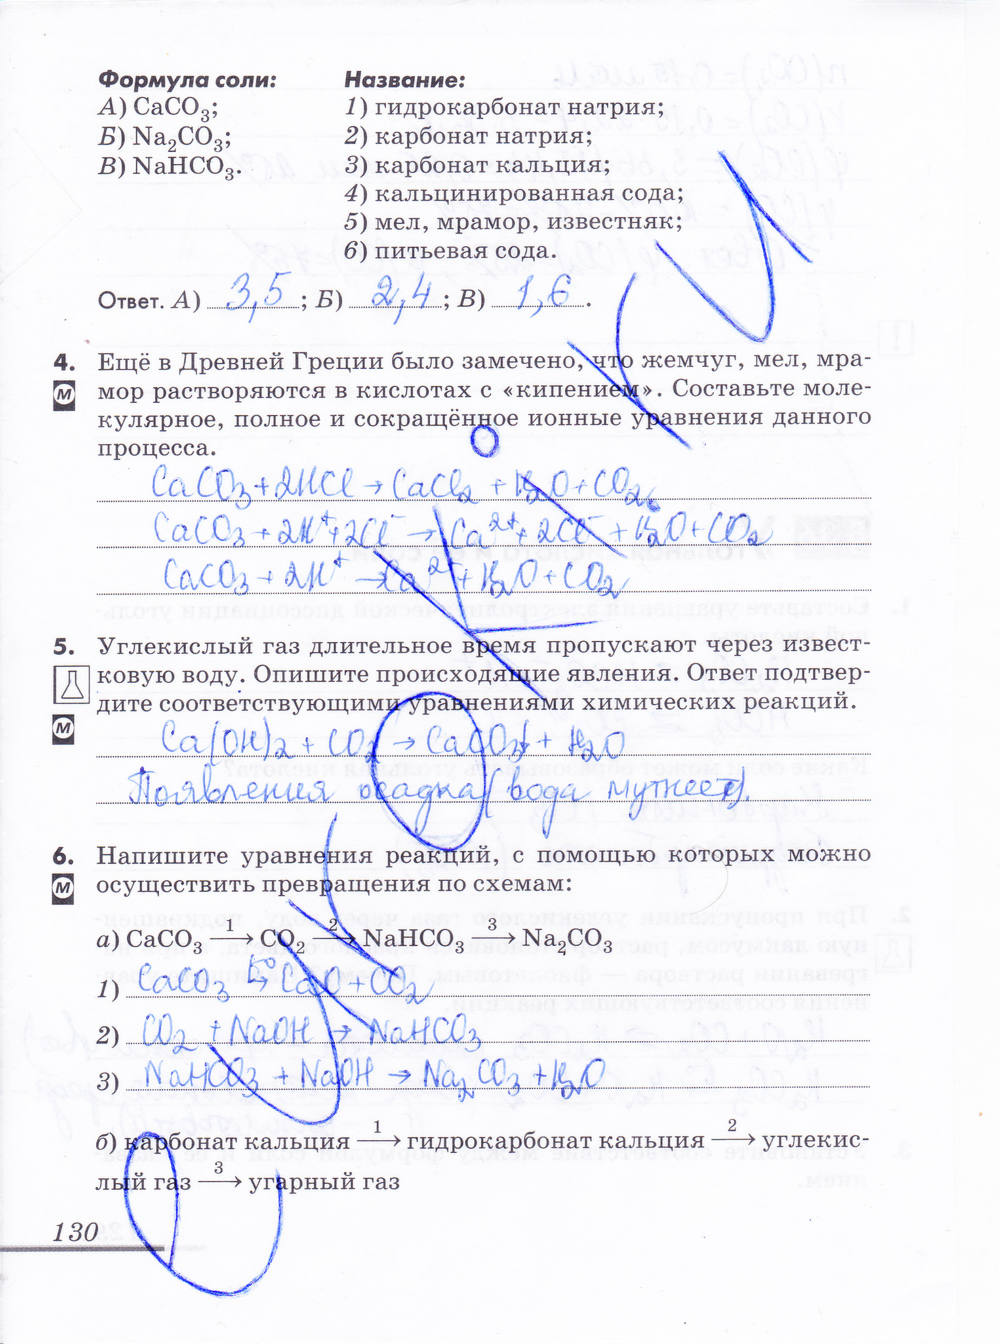 Формула соли: Название:
А) CaCO₃; 1) гидрокарбонат натрия;
Б) Na₂CO₃; 2) карбонат натрия;
В) NaHCO₃. 3) карбонат кальция;
4) кальцинированная сода;
5) мел, мрамор, известняк;
6) питьевая сода.
Ответ. А) 3,5; Б) 2,4; В) 1,6.
4. Ещё в Древней Греции было замечено, что жемчуг, мел, мра-
М мор растворяются в кислотах с «кипением». Составьте моле-
кулярное, полное и сокращённое ионные уравнения данного
процесса.
CaCO₃ + 2HCl → CaCl₂ + H₂O + CO₂
CaCO₃ + 2H⁺ + 2Cl⁻ → Ca²⁺ + 2Cl⁻ + H₂O + CO₂
CaCO₃ + 2H⁺ → Ca²⁺ + H₂O + CO₂
5. Углекислый газ длительное время пропускают через извест-
ковую воду. Опишите происходящие явления. Ответ подтвер-
М дите соответствующими уравнениями химических реакций.
Ca(OH)₂ + CO₂ → CaCO₃↓ + H₂O
Появления осадка (вода мутнеет).
6. Напишите уравнения реакций, с помощью которых можно
М осуществить превращения по схемам:
а) CaCO₃ —1→ CO₂ —2→ NaHCO₃ —3→ Na₂CO₃
1) CaCO₃ t°→ CaO + CO₂
2) CO₂ + NaOH → NaHCO₃
3) NaHCO₃ + NaOH → Na₂CO₃ + H₂O
б) карбонат кальция —1→ гидрокарбонат кальция —2→ углекис-
лый газ —3→ угарный газ
130